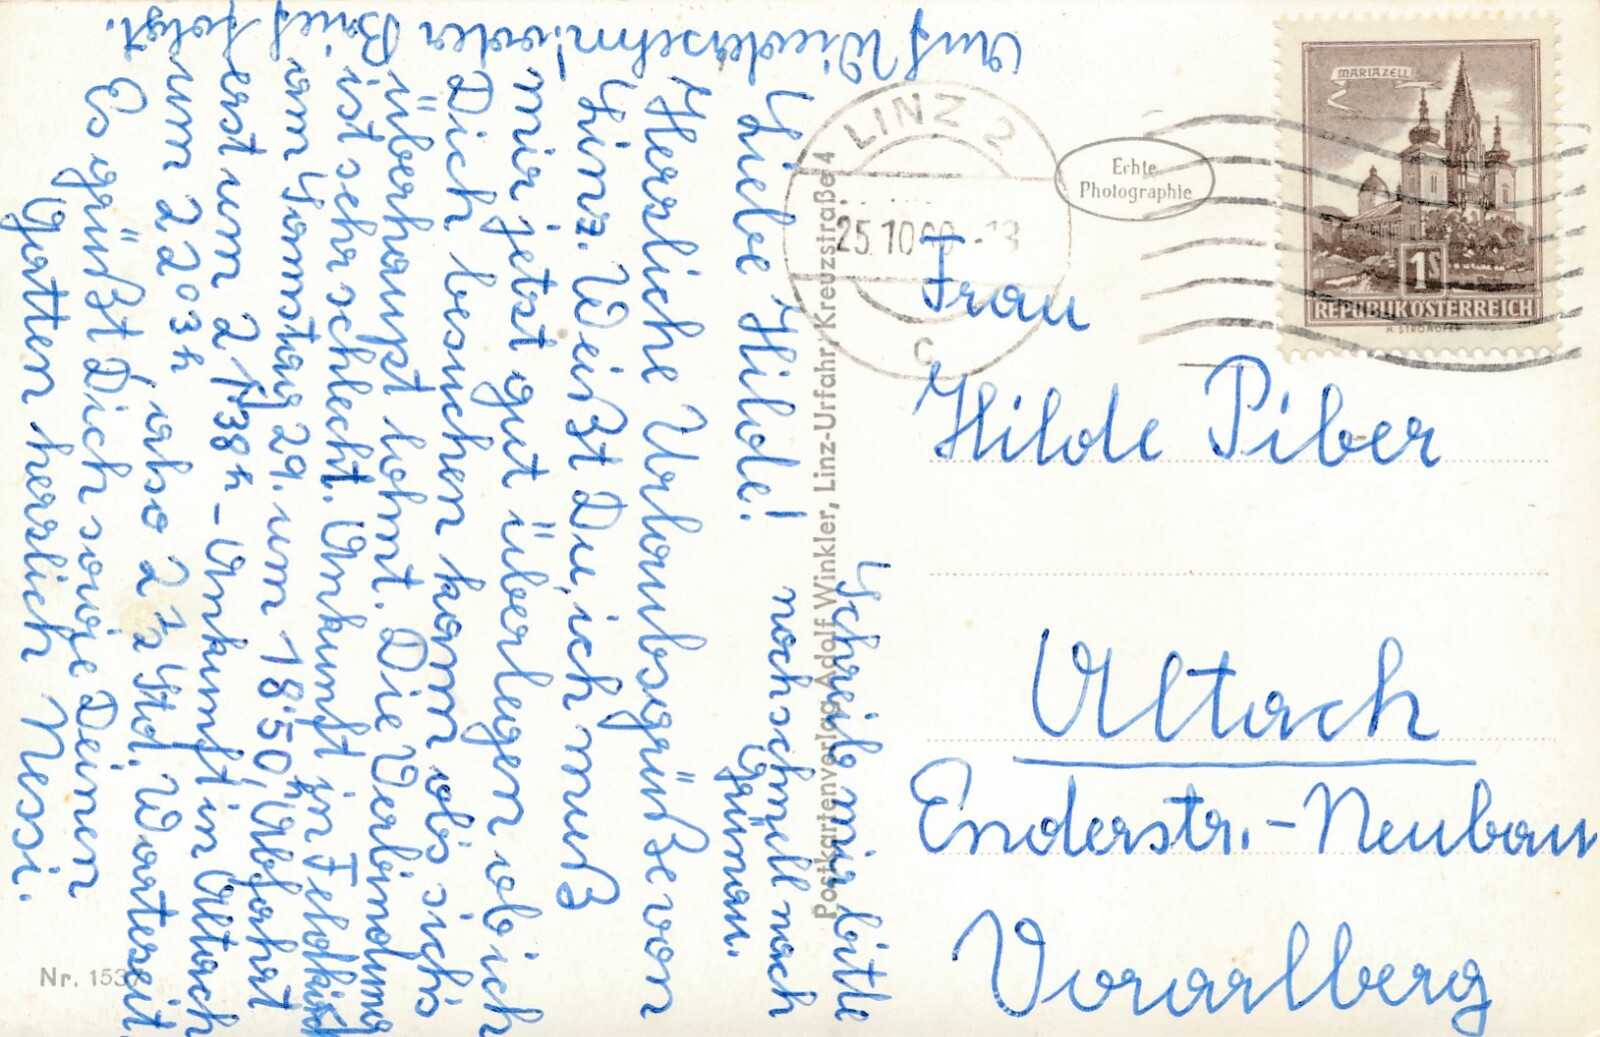 Liebe Hilde!
Herzliche Urlaubsgrüße von
Linz. Weißt Du, ich muß
mir jetzt gut überlegen ob ich
Dich besuchen kann, ob's sich's
überhaupt lohnt. Die Verbindung
ist sehr schlecht. Ankunft in Feldkirch
am Samstag 29. um 18'50h, Abfahrt
erst um 21'38h - Ankunft in Altach
um 2203h also 2 1/2 Std. Wartezeit
Es grüßt Dich sowie Deinen
Gatten herzlich Nessi.
Auf Wiedersehn! oder Brief folgt.
Schreib mir bitte
noch schnell nach
Grünau.
Frau
Hilde Piber
Altach
Enderstr.-Neubau
Vorarlberg
LINZ 2
25.10.60
c
Echte
Photographie
MARIAZELL
1S
REPUBLIK ÖSTERREICH
Postkartenverlag Adolf Winkler, Linz-Urfahr, Kreuzstraße 4
Nr. 153